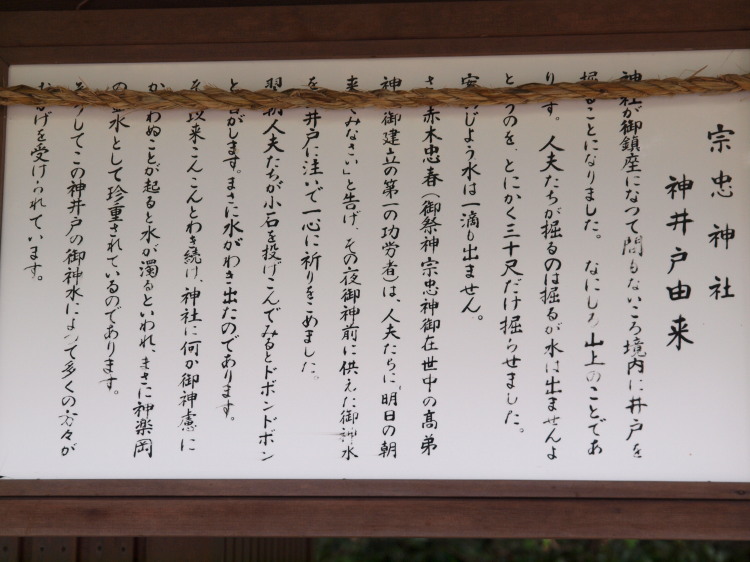 宗忠神社
神井戸由来
神社が御鎮座になつて間もないころ境内に井戸を
掘ることになりました。なにしろ山上のことであ
ります。人夫たちが掘るのは掘るが水は出ませんよ
とうのを、とにかく三十尺だけ掘らせました。
じよう水は一滴も出ません。
赤木忠春(御祭神宗忠神御在世中の高弟
神御建立の第一の功労者)は、人夫たちに「明日の朝
来てみなさい」と告げ、その夜御神前に供えた御神水
を井戸に注いで一心に祈りをこめました。
朝人夫たちが小石を投げこんでみるとドボンドボン
と音がします。まさに水がわき出たのであります。
以来こんこんとわき続け、神社に何か御神慮に
かなわぬことが起ると水が濁るといわれ、まさに神楽岡
の水として珍重されているのであります。
そうしてこの神井戸の御神水によつて多くの方々が
おかげを受けられています。